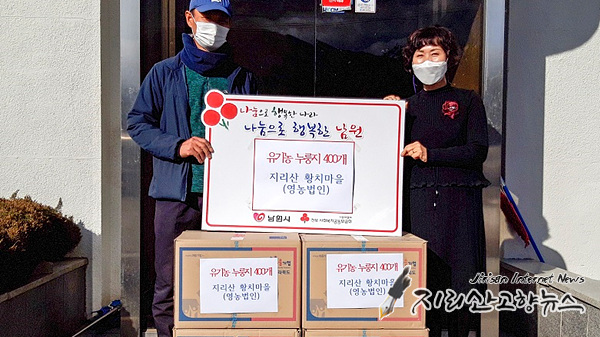 나눔으로 행복한 나라
나눔으로 행복한 남원
유기농 누룽지 400개
지리산 황치마을
(영농법인)
남원시
전북 사회복지공동모금회
유기농 누룽지 400개
지리산 황치마을
(영농법인)
유기농 누룽지 400개
지리산 황치마을
(영농법인)
Jirisan Internet News
지리산고향뉴스